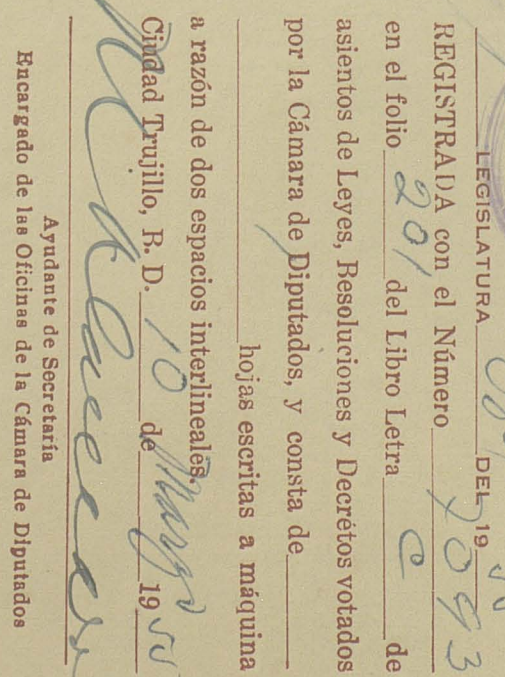 LEGISLATURA DEL 19
REGISTRADA con el Número 7093
en el folio 201 del Libro Letra C de
asientos de Leyes, Resoluciones y Decretos votados
por la Cámara de Diputados, y consta de
hojas escritas a máquina
a razón de dos espacios interlineales.
Ciudad Trujillo, R. D. 10 de Marzo 19
Ayudante de Secretaría
Encargado de las Oficinas de la Cámara de Diputados